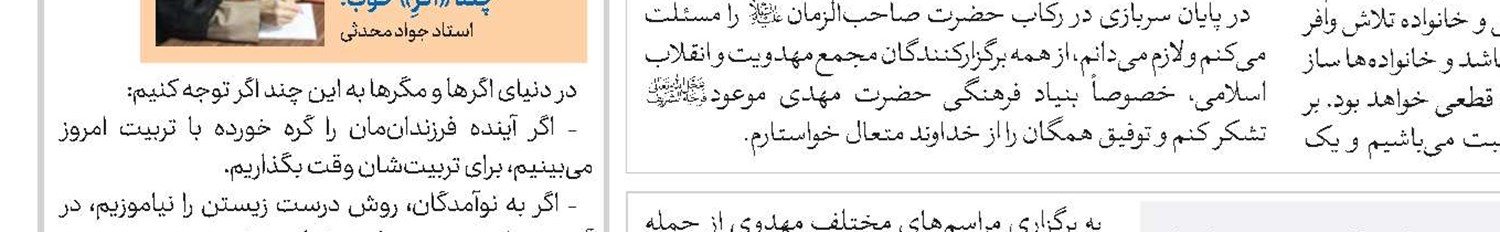 ی و خانواده تلاش وافر
اشد و خانواده‌ها ساز
قطعی خواهد بود. بر
بت می‌باشیم و یک
در پایان سربازی در رکاب حضرت صاحب‌الزمان را مسئلت
می‌کنم و لازم می‌دانم، از همه برگزارکنندگان مجمع مهدویت و انقلاب
اسلامی، خصوصاً بنیاد فرهنگی حضرت مهدی موعود
تشکر کنم و توفیق همگان را از خداوند متعال خواستارم.
به برگزاری مراسم‌های مختلف مهدوی از جمله
چند «اگرِ» خوب!
استاد جواد محدثی
در دنیای اگرها و مگرها به این چند اگر توجه کنیم:
- اگر آینده فرزندان‌مان را گره خورده با تربیت امروز
می‌بینیم، برای تربیت‌شان وقت بگذاریم.
- اگر به نوآمدگان، روش درست زیستن را نیاموزیم، در